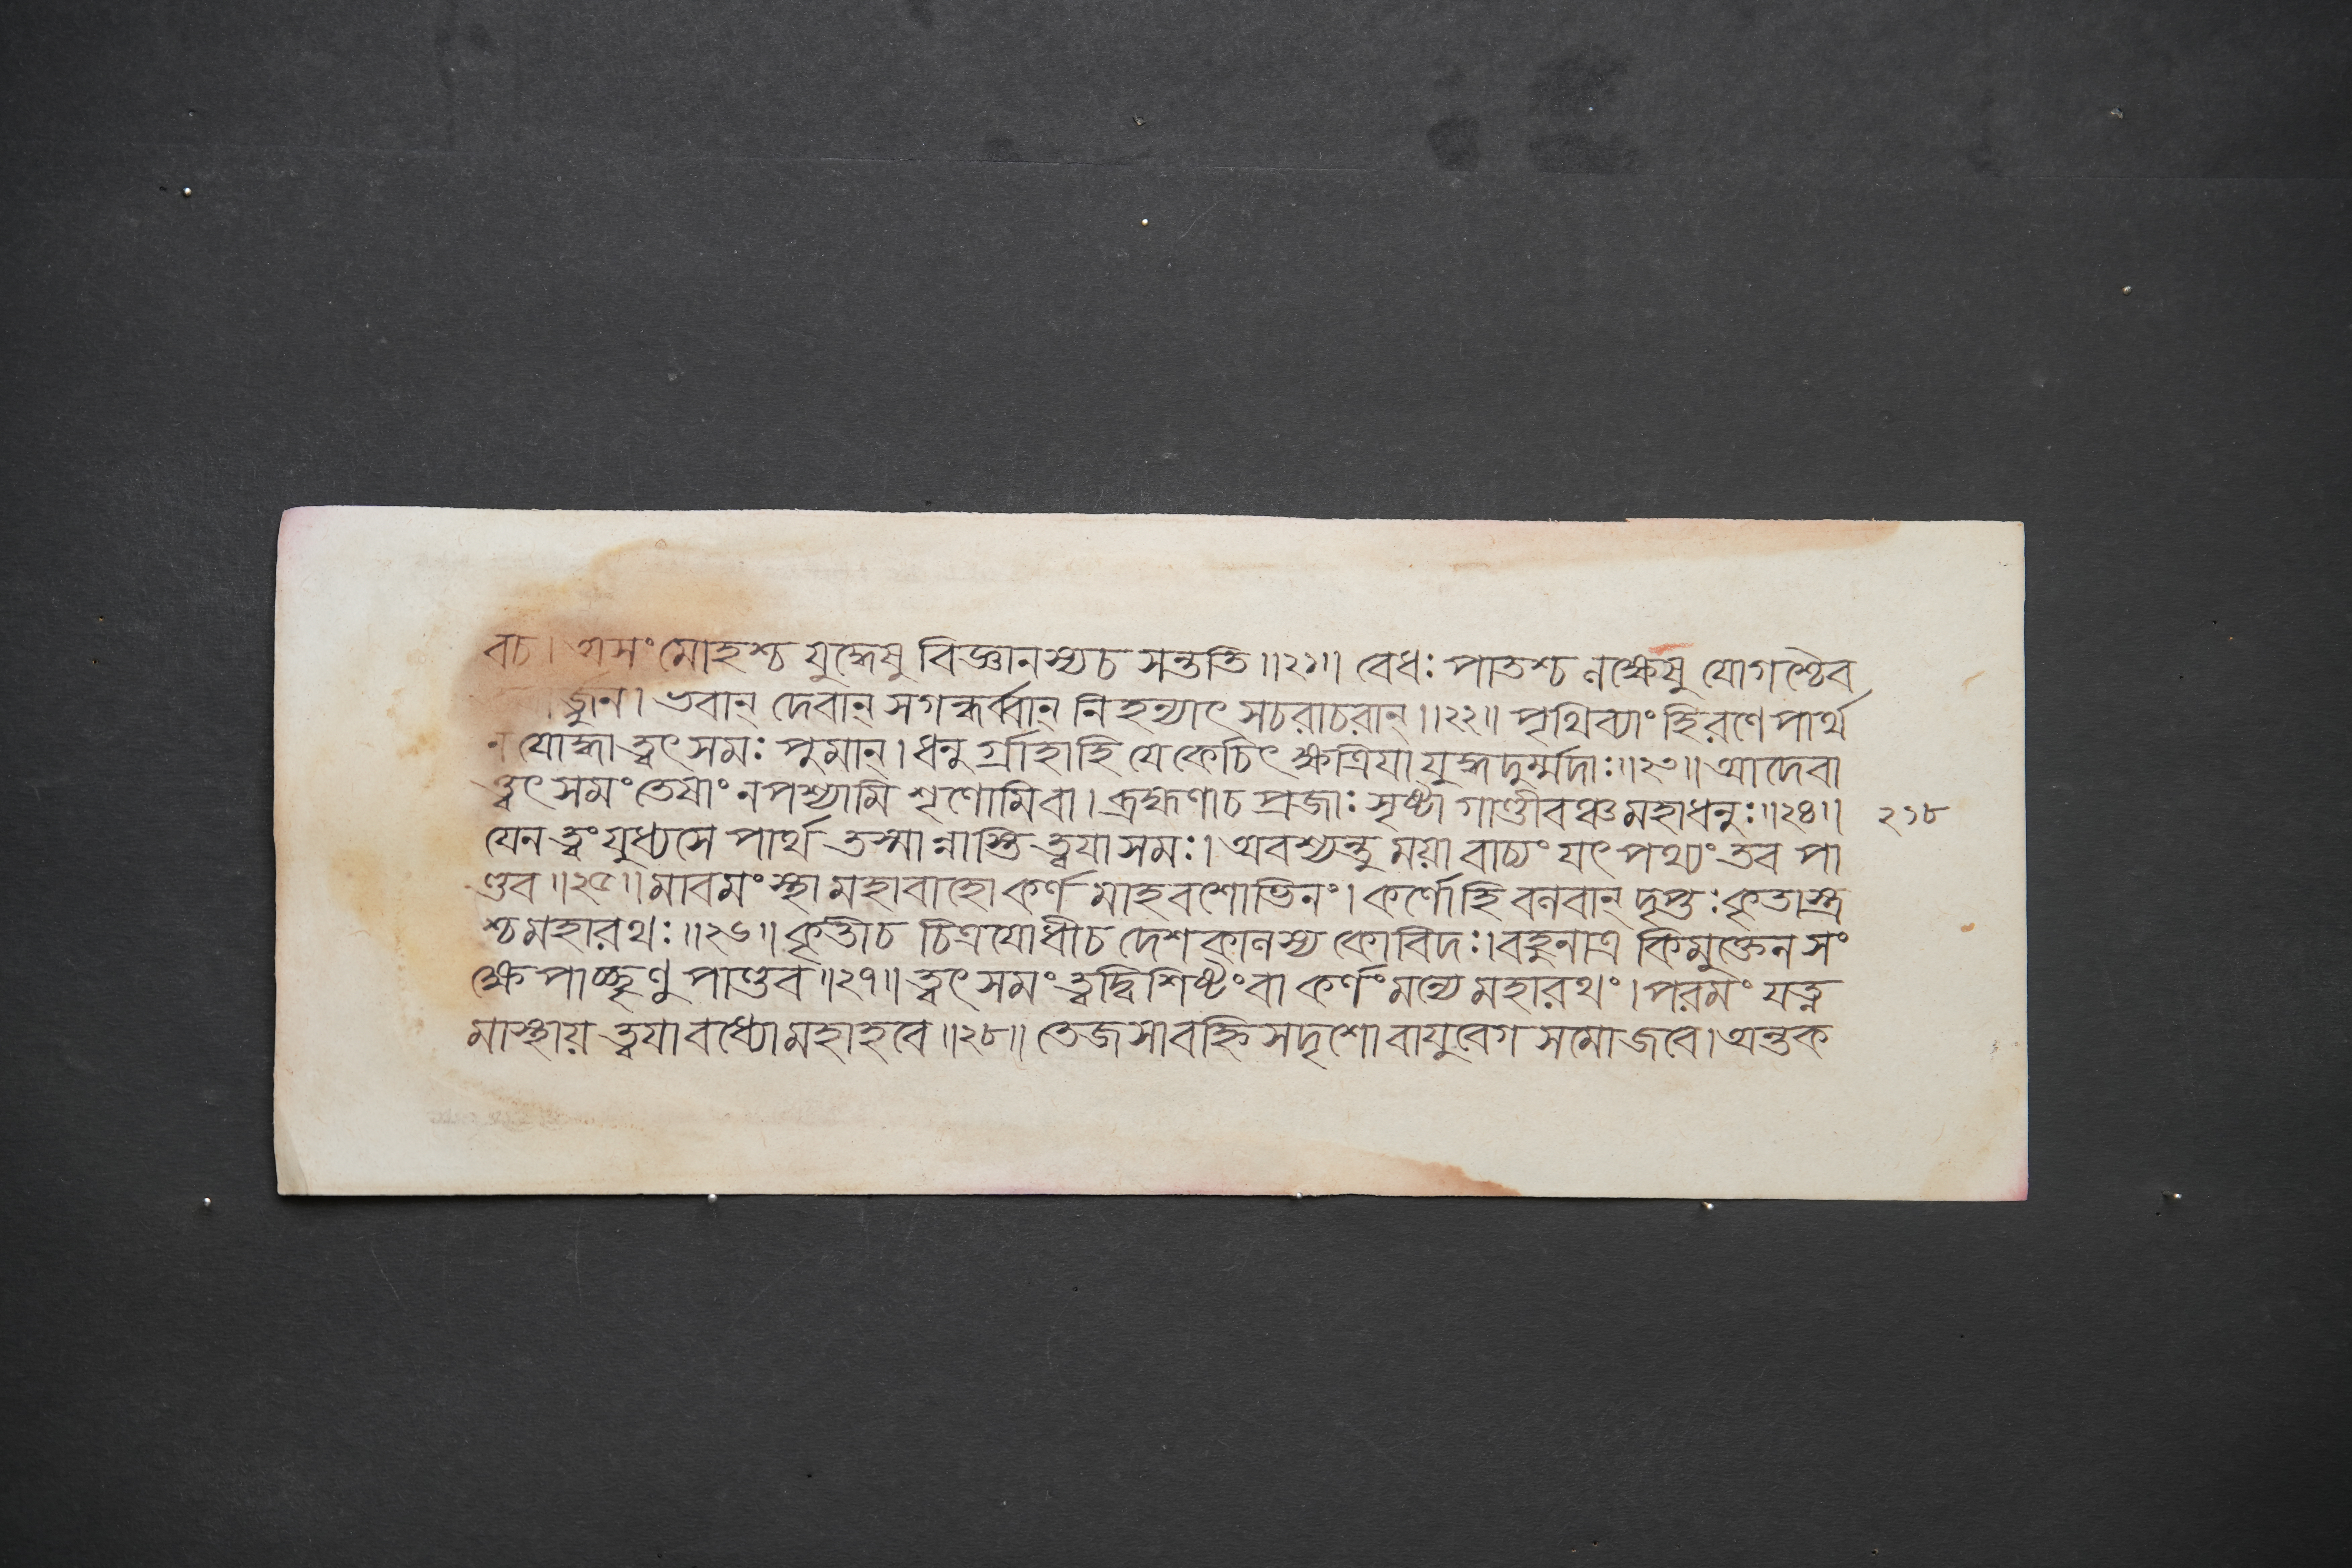 বচ। অসংমোহশ্চ যুদ্ধেষু বিজ্ঞানস্যচ সন্ততি॥২১॥ বেধঃ পাতশ্চ লক্ষেষু যোগশ্চৈব
র্জ্জুন। ভবান্ দেবান্ সগন্ধর্ব্বান্ নিহন্যাৎ সচরাচরান্॥২২॥ পৃথিব্যাং হিরণে পার্থ
ন যোদ্ধা ত্বৎ সমঃ পুমান্। ধনুর্গ্রাহাহি যেকেচিৎ ক্ষত্রিযা যুদ্ধদুর্ম্মদাঃ॥২৩॥ আদেবা
ত্ত্বৎ সমং তেষাং নপশ্যামি শৃণোমিবা। ব্রহ্মণাচ প্রজাঃ সৃষ্টা গাণ্ডীবঞ্চ মহাধনুঃ॥২৪॥ ২১৮
যেন ত্বং যুধ্যসে পার্থ তস্মান্নাস্তি ত্বযাসমঃ। অবশ্যন্তু ময়া বাচ্যং যৎ পথ্যং তব পা
ণ্ডব॥২৫॥ মাবমংস্থা মহাবাহো কর্ণ মাহবশোভিনং। কর্ণোহি বলবান্ দৃপ্তঃ কৃতাস্ত্র
শ্চ মহারথঃ॥২৬॥ কৃতীচ চিত্রযোধীচ দেশকালস্য কোবিদঃ। বহুনাত্র কিমুক্তেন সং
ক্ষেপাচ্ছৃণু পাণ্ডব॥২৭॥ ত্বৎ সমং ত্বদ্বিশিষ্টংবা কর্ণং মন্যে মহারথং। পরমং যত্ন
মাস্থায় ত্বযা বধ্যো মহাহবে॥২৮॥ তেজসা বহ্নি সদৃশো বাযুবেগ সমোজবে। অন্তক